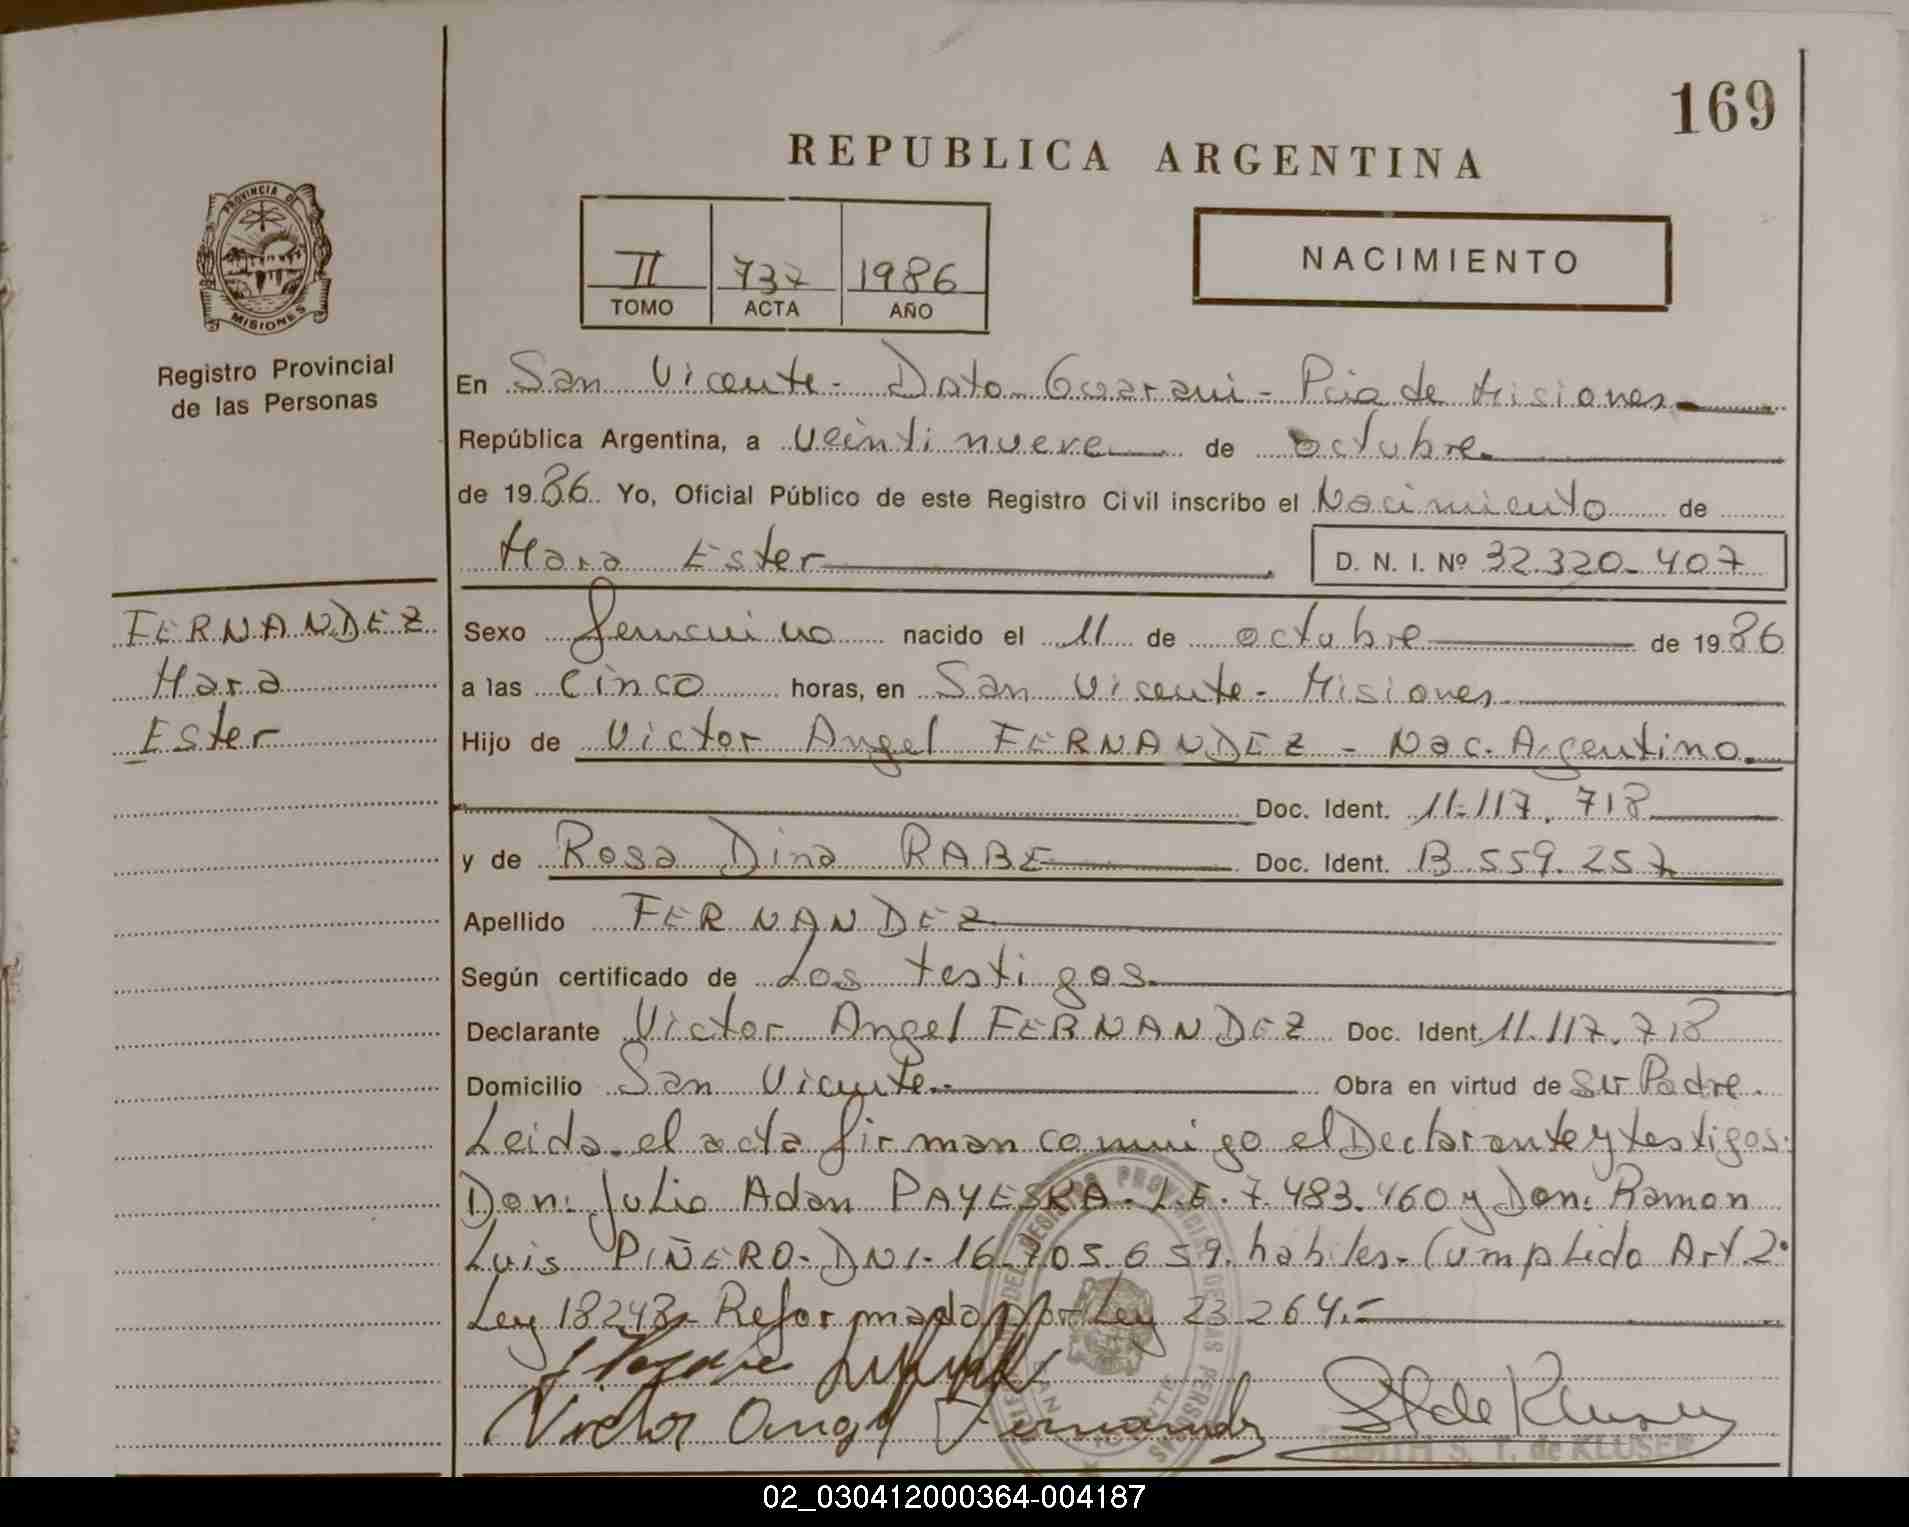 169
REPUBLICA ARGENTINA
PROVINCIA DE
MISIONES
Registro Provincial
de las Personas
II 737 1986
TOMO ACTA AÑO
NACIMIENTO
En San Vicente - Dpto Guarani - Pcia de Misiones
República Argentina, a veintinueve de octubre
de 1986 Yo, Oficial Público de este Registro Civil inscribo el Nacimiento de
Mara Ester D. N. I. Nº 32.320.407
FERNANDEZ
Mara
Ester
Sexo femenino nacido el 11 de octubre de 1986
a las cinco horas, en San Vicente - Misiones
Hijo de Victor Angel FERNANDEZ - Nac. Argentino.
Doc. Ident. 11.117.718
y de Rosa Dina RABE Doc. Ident. B.559.257
Apellido FERNANDEZ
Según certificado de Los testigos.
Declarante Victor Angel FERNANDEZ Doc. Ident. 11.117.718
Domicilio San Vicente.- Obra en virtud de su Padre.
Leida el acta firman conmigo el Declarante y testigos:
Don: Julio Adan PAYESKA - L.E. 7.483.460 y Don: Ramon
Luis PIÑERO - DNI - 16.705.659. habiles - Cumplido Art 2º
Ley 18248 - Reformada por Ley 23264.-
Victor Angel Fernandez
S T de Kluser
EDITH S. T. de KLUSER
02_030412000364-004187